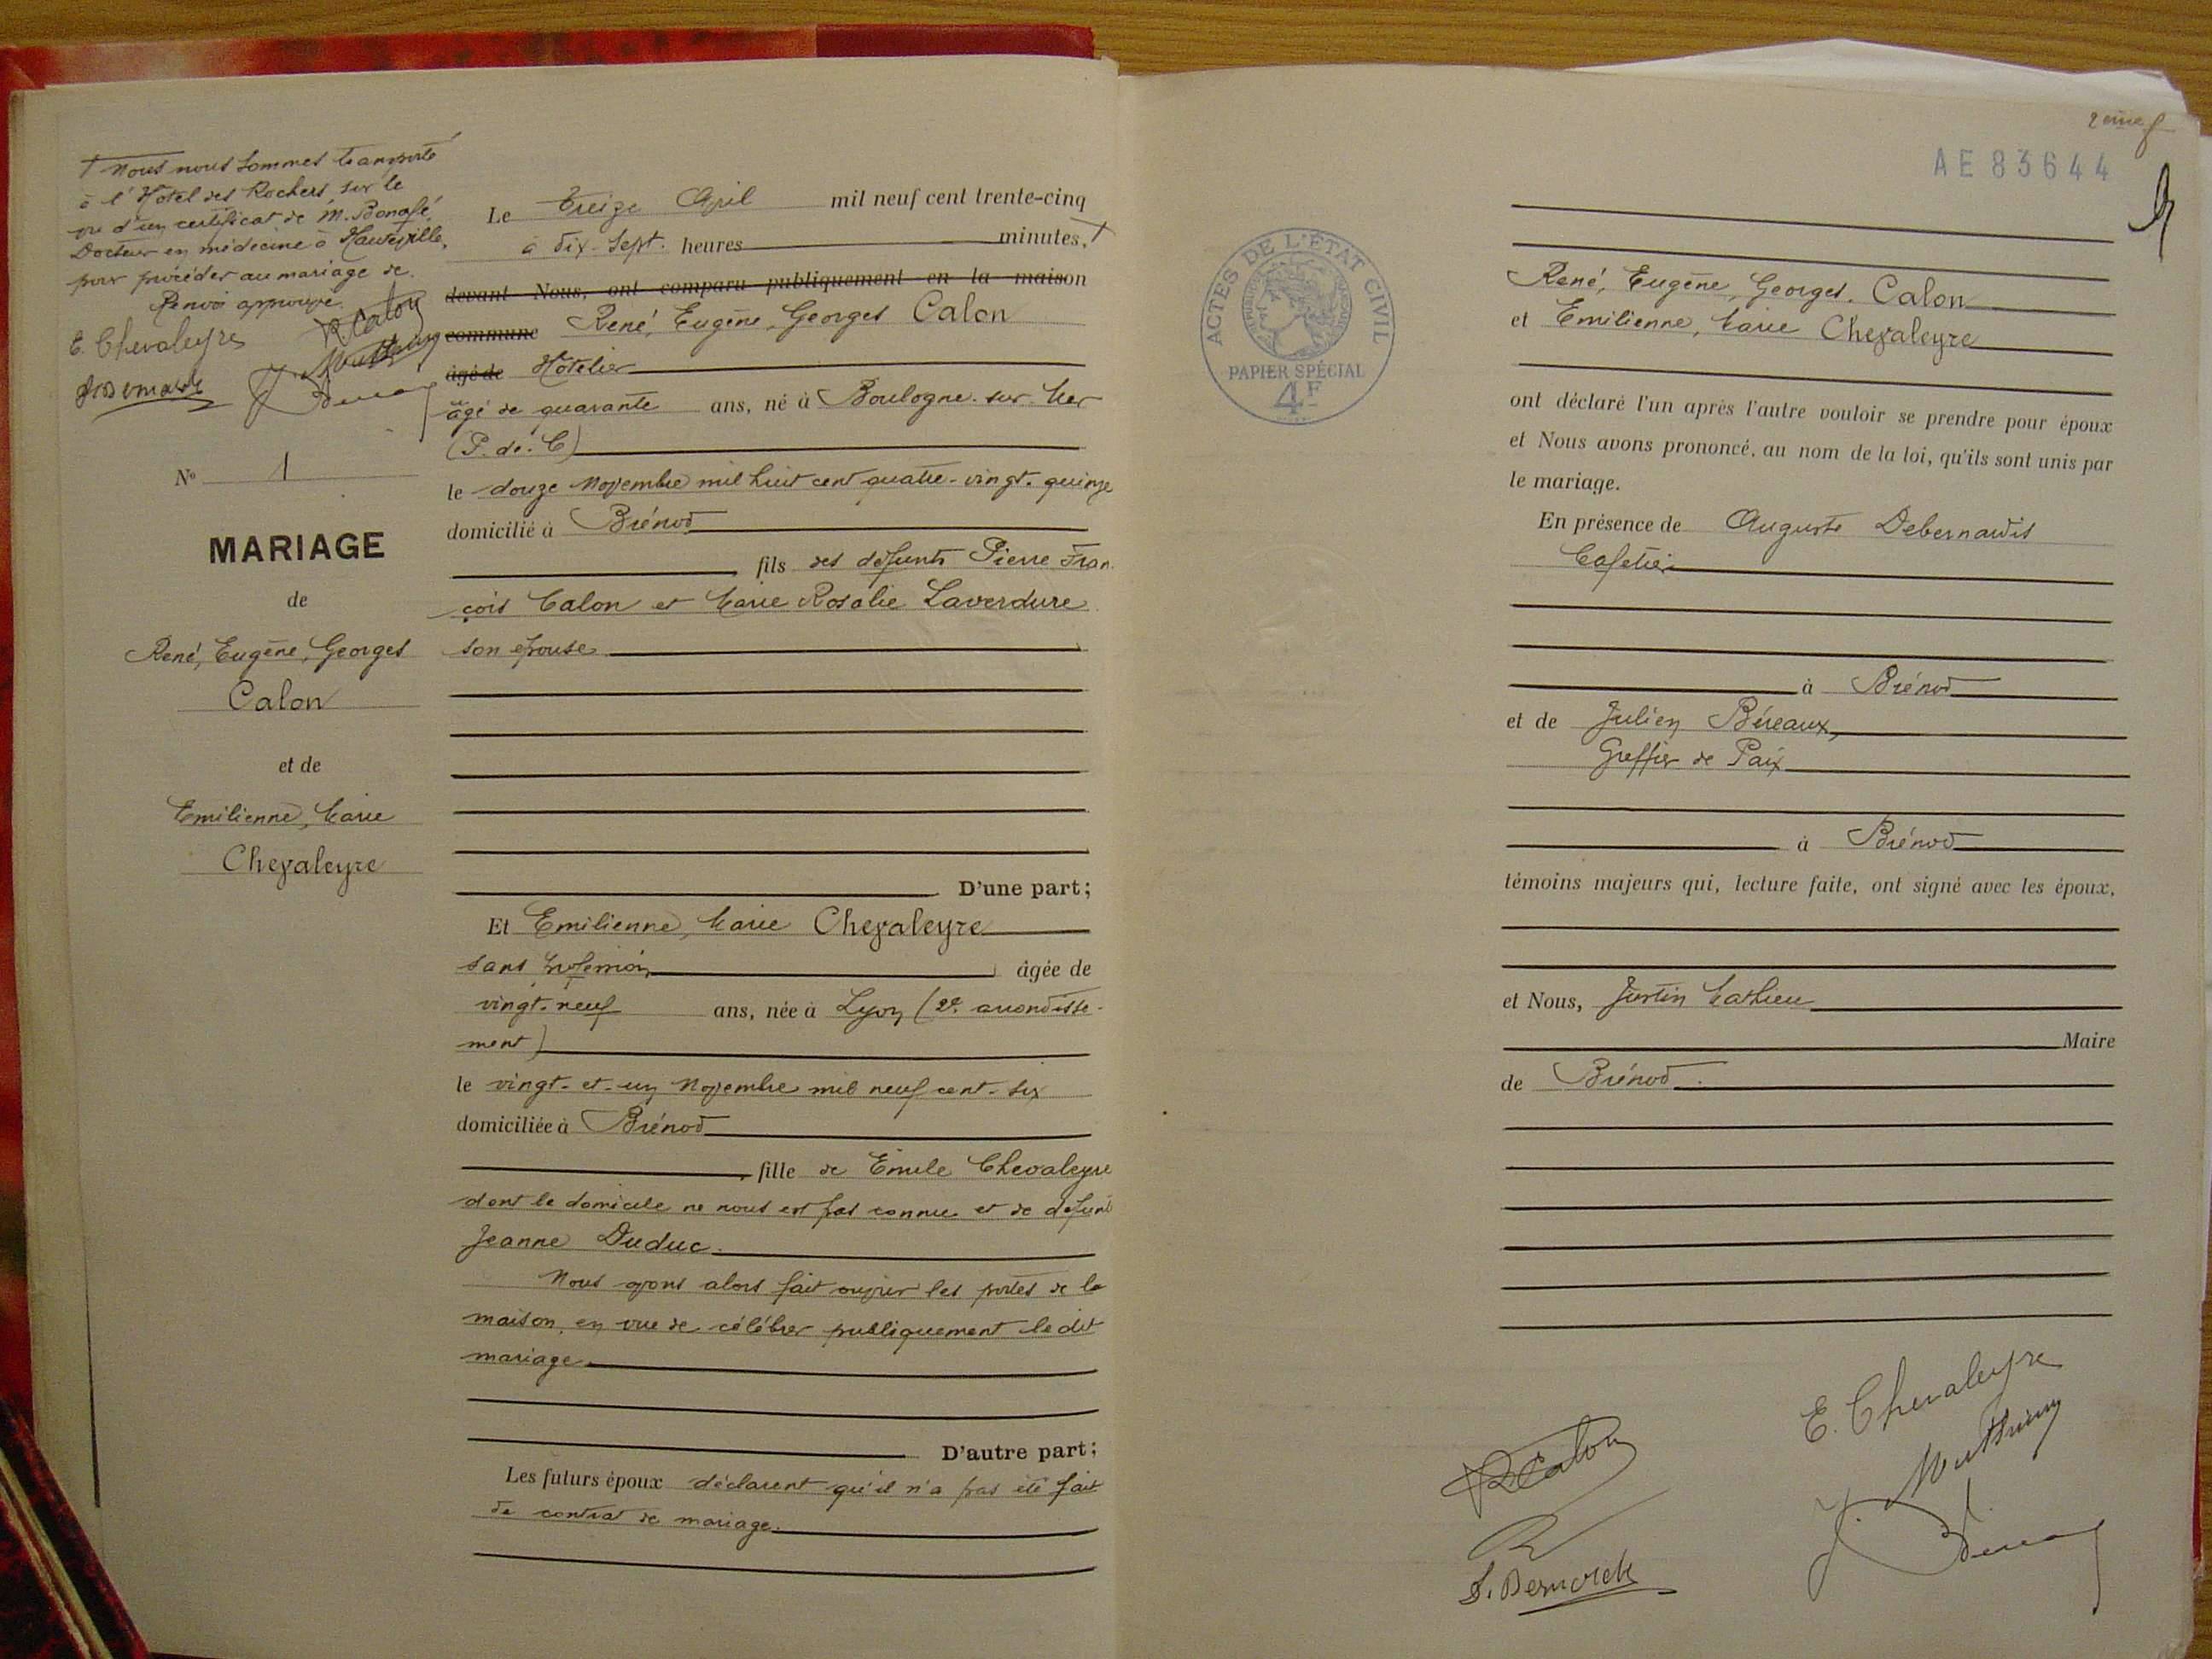 † Nous nous sommes transporté
à l'Hôtel des Rochers, sur le
vu d'un certificat de M. Bonafé,
Docteur en médecine à Hauteville,
pour procéder au mariage de.
Renvoi approuvé.
E. Chevaleyre R Calon
N° 1
MARIAGE
de
René, Eugène, Georges
Calon
et de
Emilienne, Marie
Chevaleyre
Le Treize Avril mil neuf cent trente-cinq
à dix-sept heures minutes, †
devant Nous, ont comparu publiquement en la maison
commune René, Eugène, Georges Calon
âgé de Hôtelier
âgé de quarante ans, né à Boulogne-sur-Mer
(P.-de-C)
le douze Novembre mil huit cent quatre-vingt-quinze
domicilié à Brénod
fils des défunts Pierre Fran
çois Calon et Marie Rosalie Laverdure
son épouse
D'une part;
Et Emilienne, Marie Chevaleyre
sans profession, âgée de
vingt-neuf ans, née à Lyon (2e arrondisse-
ment)
le vingt-et-un Novembre mil neuf cent-six
domiciliée à Brénod
fille de Emile Chevaleyre
dont le domicile ne nous est pas connu et de défunte
Jeanne Duduc.
Nous avons alors fait ouvrir les portes de la
maison, en vue de célébrer publiquement le dit
mariage.
D'autre part;
Les futurs époux déclarent qu'il n'a pas été fait
de contrat de mariage.
AE 83644
ACTES DE L'ÉTAT CIVIL
PAPIER SPÉCIAL
4F
René, Eugène, Georges. Calon
et Emilienne, Marie Chevaleyre
ont déclaré l'un après l'autre vouloir se prendre pour époux
et Nous avons prononcé, au nom de la loi, qu'ils sont unis par
le mariage.
En présence de Auguste Debernardis
Cafetier
à Brénod
et de Julien Béreaux,
Greffier de Paix
à Brénod
témoins majeurs qui, lecture faite, ont signé avec les époux,
et Nous, Justin Mathieu
Maire
de Brénod.
E. Chevaleyre
R Calon